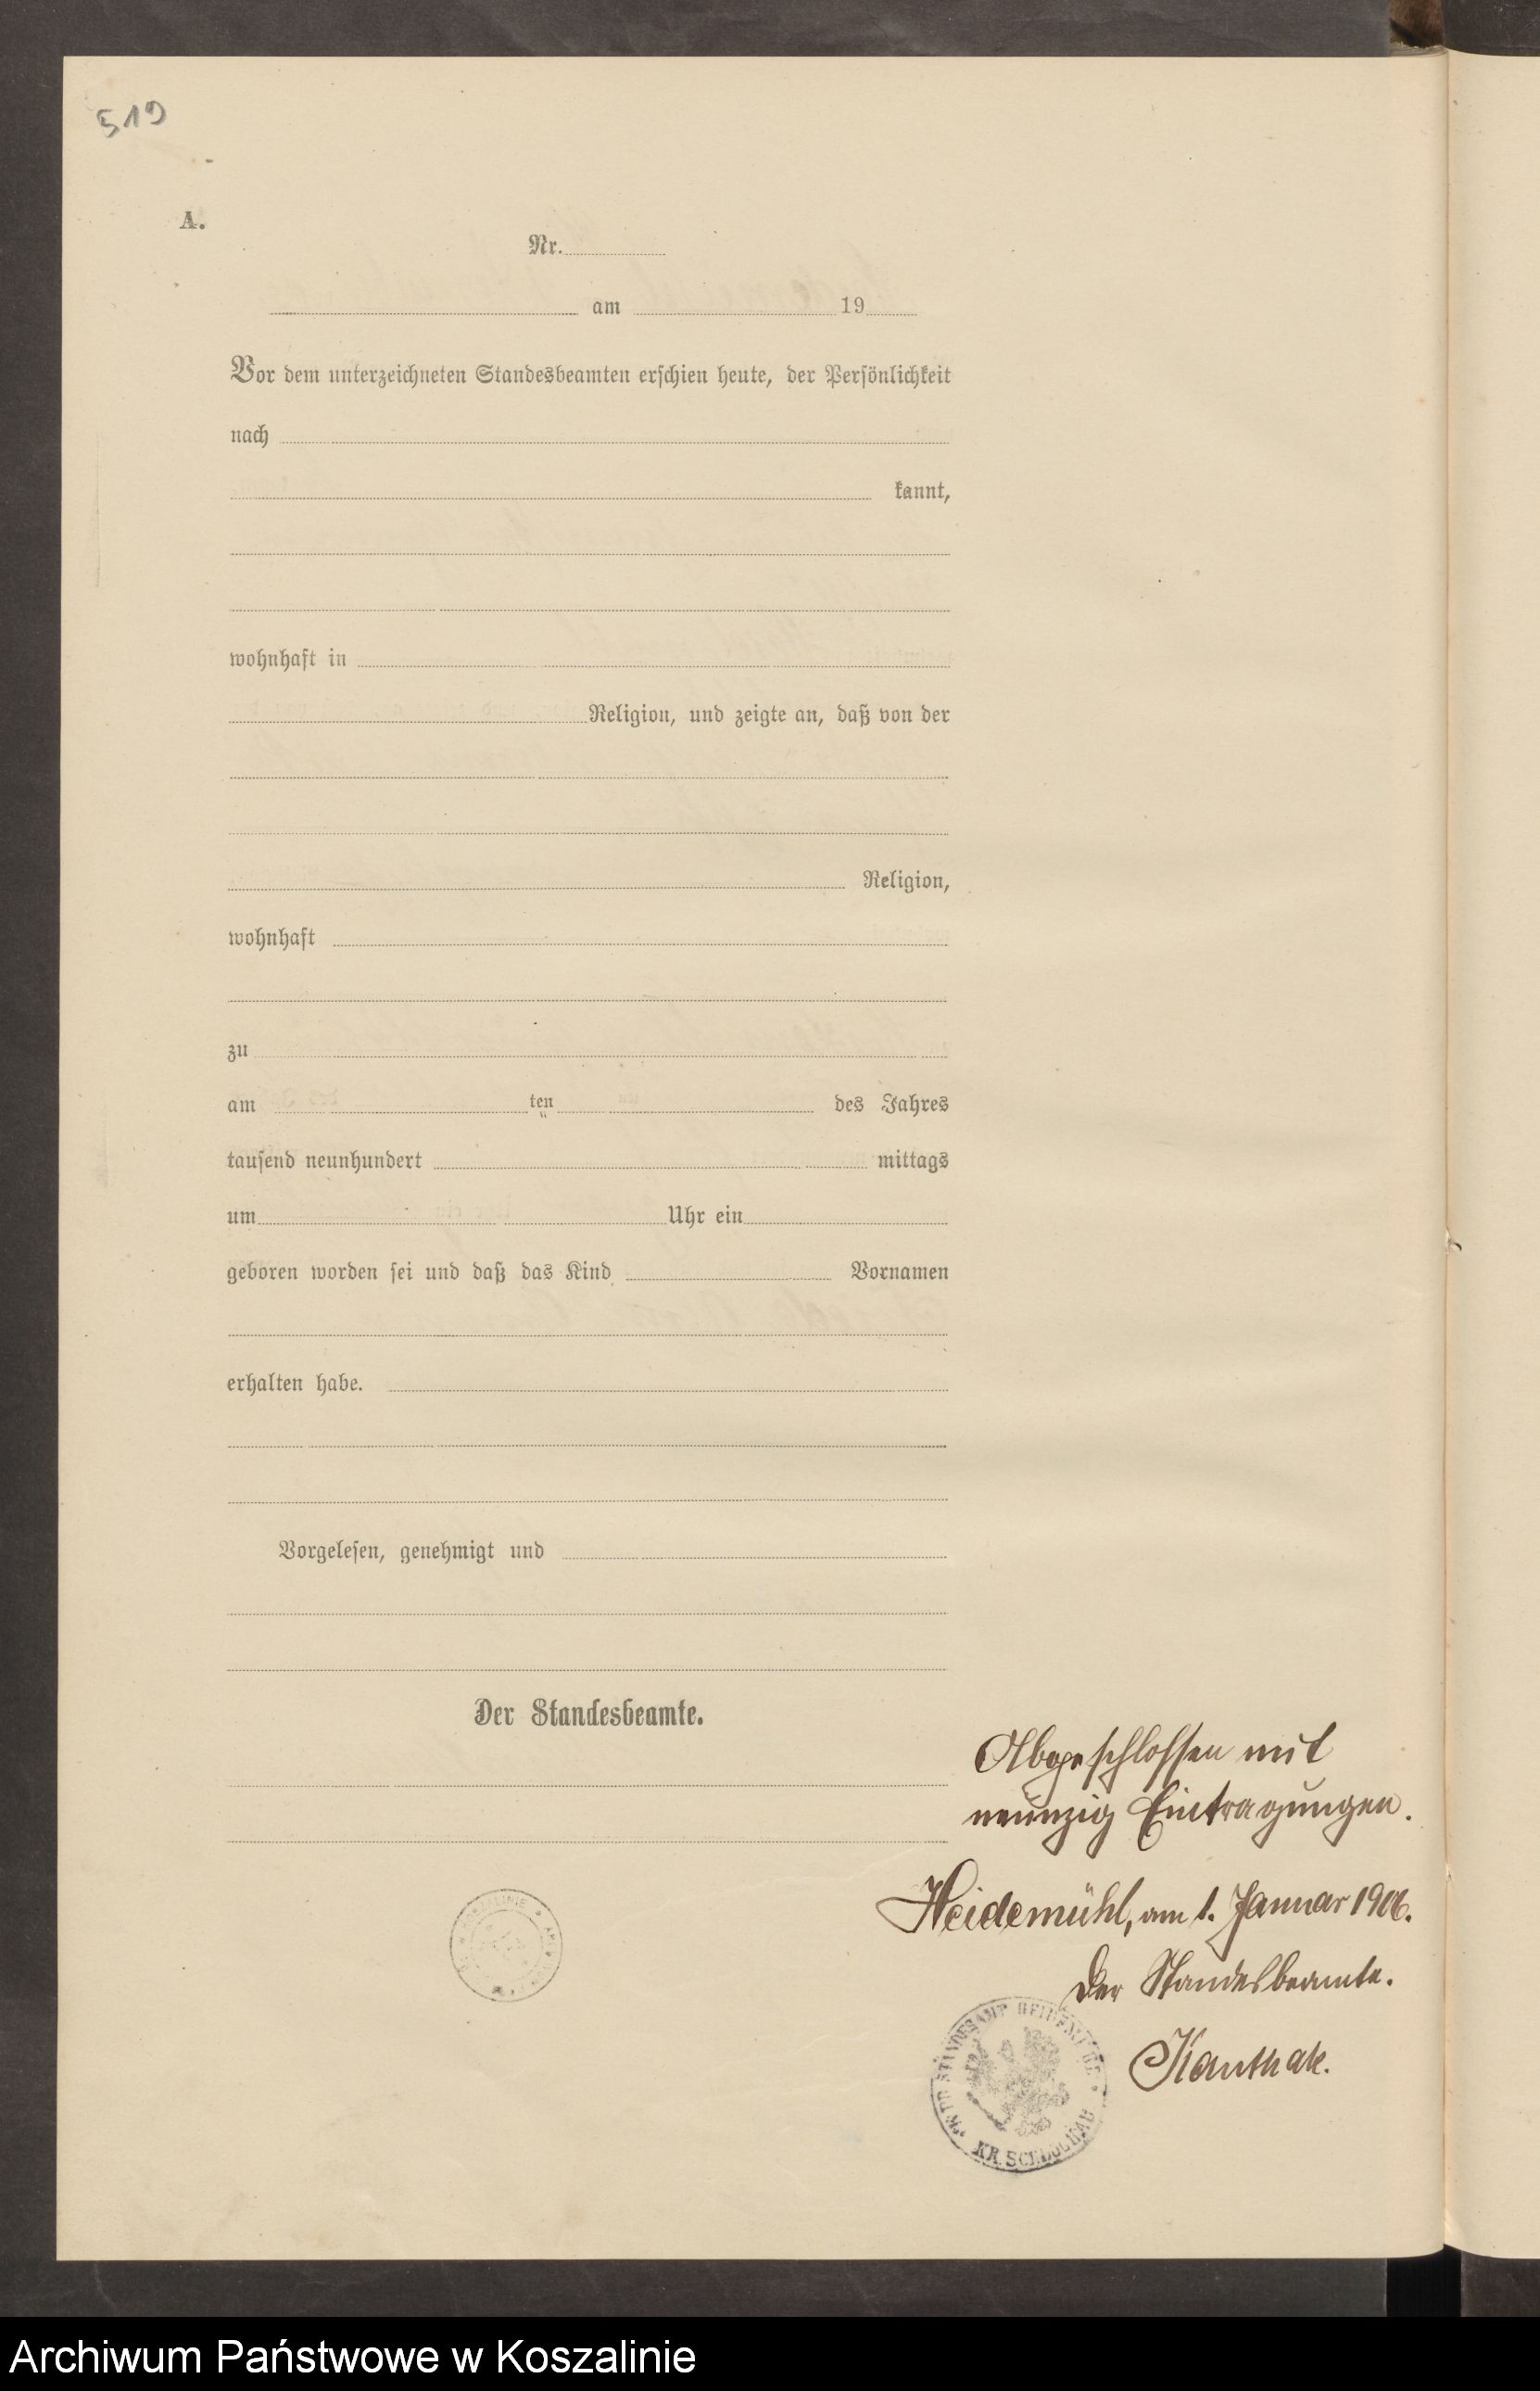 519
A.
Nr.
am 19
Vor dem unterzeichneten Standesbeamten erschien heute, der Persönlichkeit
nach
kannt,
wohnhaft in
Religion, und zeigte an, daß von der
Religion,
wohnhaft
zu
am ten des Jahres
tausend neunhundert mittags
um Uhr ein
geboren worden sei und daß das Kind Vornamen
erhalten habe.
Vorgelesen, genehmigt und
Der Standesbeamte.
Abgeschlossen mit
neunzig Eintragungen.
Heidemühl, am 1. Januar 1906.
Der Standesbeamte.
Kanthak.
STANDESAMT HEIDEMÜHL
KR. SCHLOCHAU
Archiwum Państwowe w Koszalinie